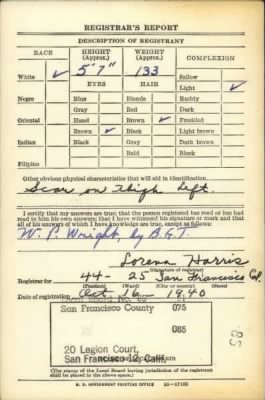 REGISTRAR'S REPORT
DESCRIPTION OF REGISTRANT
RACE HEIGHT (Approx.) WEIGHT (Approx.) COMPLEXION
5' 7" 133
White ✓ Sallow
EYES HAIR Light ✓
Negro Blue Blonde Ruddy
Gray Red Dark
Oriental Hazel Brown ✓ Freckled
Brown ✓ Black Light brown
Indian Black Gray Dark brown
Bald Black
Filipino
Other obvious physical characteristics that will aid in identification
Scar on thigh left.
I certify that my answers are true; that the person registered has read or has had
read to him his own answers; that I have witnessed his signature or mark and that
all of his answers of which I have knowledge are true, except as follows:
W. P. Wright, by B.E.T.
Lorena Harris
(Signature of registrar)
Registrar for 44- 25 San Francisco Cal.
(Precinct) (Ward) (City or county) (State)
Date of registration Oct 16 1940
San Francisco County 075
085
20 Legion Court,
San Francisco 12, Calif.
(The stamp of the Local Board having jurisdiction of the registrant
shall be placed in the above space.)
U. S. GOVERNMENT PRINTING OFFICE 16—17105